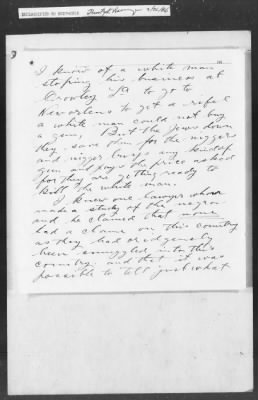 I know of a white man
stoping his business at
Crowley La to go to
Neworleans to get a rifel
a white man could not buy
a gun, But the Jews down
they save them for the niggers
and nigger buys any kind of
gun and pays the price asked
for they are getting ready to
kill the white man.
I knew one lawyer whom
made a study of the negroe
and he claimed that none
had a claime on this country
as they had oridgenaly
been smuggled into this
country. and that it was
possible to tell just what